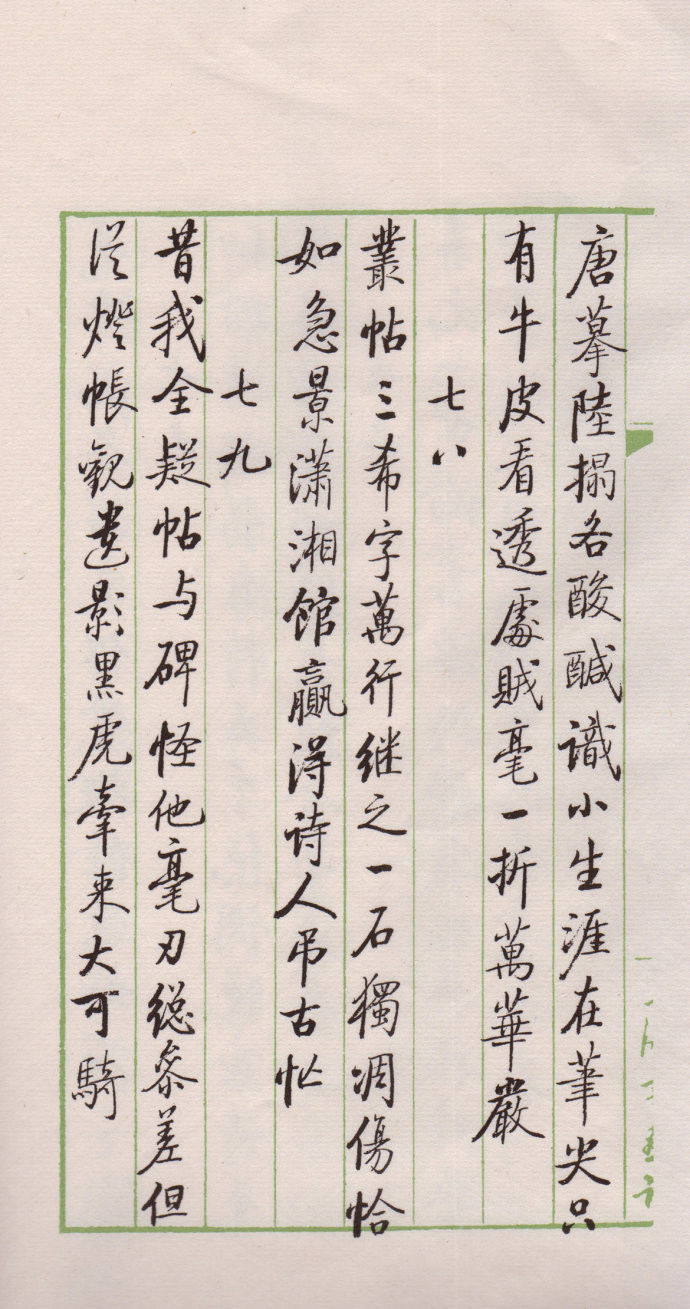 唐摹陸搨各酸醎識小生涯在筆尖只
有牛皮看透處賊毫一折萬華嚴
七八
叢帖三希字萬行继之一石獨凋傷恰
如急景瀟湘館贏得诗人吊古忙
七九
昔我全疑帖与碑怪他毫刃總参差但
从燈帳觀遺影黑虎牽来大可騎